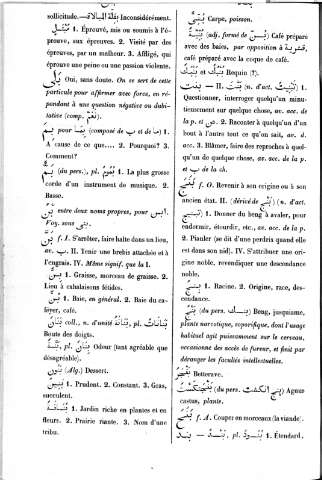 sollicitude. سَبَهْلَلَا — Inconsidérément.
1. Éprouvé, mis ou soumis à l'é-
preuve, aux épreuves. 2. Visité par des
épreuves, par un malheur. 3. Affligé, qui
éprouve une peine ou une passion violente.
بَلَى Oui, sans doute. On se sert de cette
particule pour affirmer avec force, en ré-
pondant à une question négative ou dubi-
tative (comp. نَعَم).
بِمَ pour بِمَا (composé de بِ et de مَا) 1.
A cause de ce que.... 2. Pourquoi? 3.
Comment?
بَمّ (du pers.), pl. بُمُوم 1. La plus grosse
corde d'un instrument de musique. 2.
Basse.
بن entre deux noms propres, pour ابن.
Voy. sous بنى.
بَنَّ f. I. S'arrêter, faire halte dans un lieu,
av. ب. II. Tenir une brebis attachée et à
l'engrais. IV. Même signif. que la I.
1. Graisse, morceau de graisse. 2.
Lieu à exhalaisons fétides.
بُنّ 1. Baie, en général. 2. Baie du ca-
féyer, café.
بَنَان coll., n. d'unité بَنَانَة, pl. بَنَانَات
Bouts des doigts.
بَنَّة, pl. بِنَان Odeur (tant agréable que
désagréable).
(Alg.) Dessert.
1. Prudent. 2. Constant. 3. Gras,
succulent.
1. Jardin riche en plantes et en
fleurs. 2. Prairie riante. 3. Nom d'une
tribu.
بُنِّي Carpe, poisson.
(adj. formé de بُنّ) Café préparé
avec des baies, par opposition à قشرية
café préparé avec la coque de café.
et Requin (?).
بنت — II. بَنَّتَ (n. d'act. تَبْنِيت) 1.
Questionner, interroger quelqu'un minu-
tieusement sur quelque chose, av. acc. de
la p. et عن. 2. Raconter à quelqu'un d'un
bout à l'autre tout ce qu'on sait, av. d.
acc. 3. Blâmer, faire des reproches à quel-
qu'un de quelque chose, av. acc. de la p.
et ب de la ch.
بنج f. O. Revenir à son origine ou à son
ancien état. II. (dérivé de بَنْج) (n. d'act.
تَبْنِيج) 1. Donner du beng à avaler, pour
endormir, étourdir, etc., av. acc. de la p.
2. Piauler (se dit d'une perdrix quand elle
est dans son nid). IV. S'attribuer une ori-
gine noble, revendiquer une descendance
noble.
بِنْج 1. Racine. 2. Origine, race, des-
cendance.
بَنْج (du pers. بنك) Beng, jusquiame,
plante narcotique, soporifique, dont l'usage
habituel agit puissamment sur le cerveau,
occasionne des accès de fureur, et finit par
déranger les facultés intellectuelles.
Betterave.
بنجنكشت (du pers. پنج انكشت) Agnus
castus, plante.
f. A. Couper en morceaux (la viande).
بند — بَنْد, pl. بُنُود 1. Étendard.